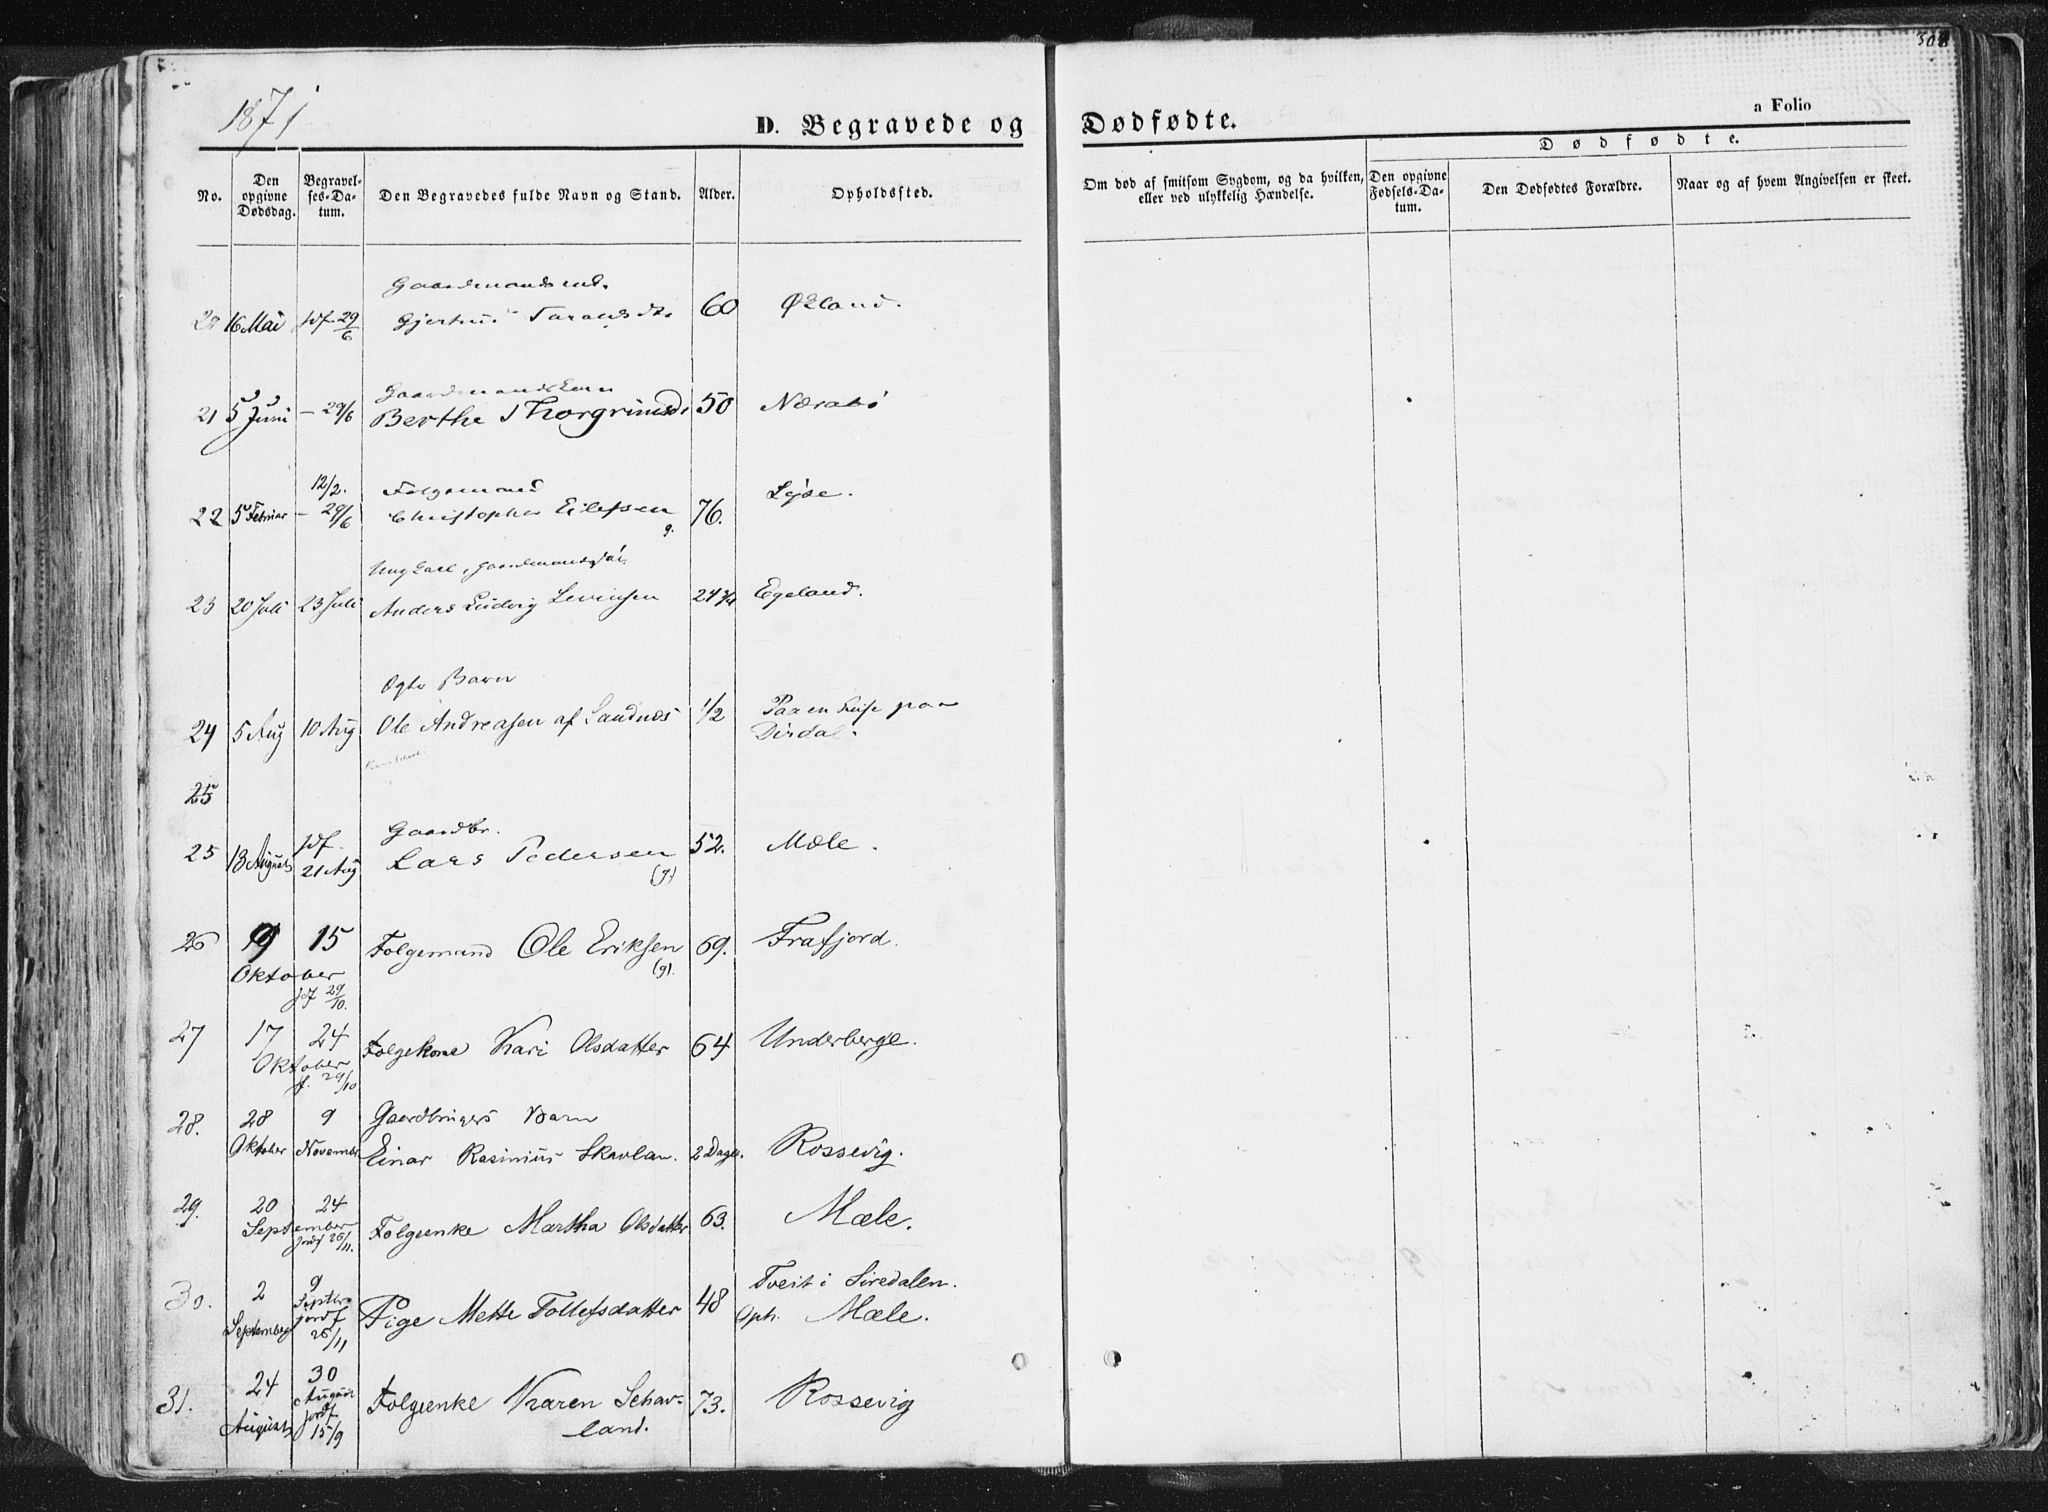 1871
304
a Folio
D. Begravede og Dødfødte.
Dødfødte.
No.
Den opgivne Dødsdag.
Begravelses-Datum.
Den Begravedes fulde Navn og Stand.
Alder.
Opholdssted.
Om død af smitsom Sygdom, og da hvilken, eller ved ulykkelig Hændelse.
Den opgivne Fødsels-Datum.
Den Dødfødtes Forældre.
Naar og af hvem Angivelsen er skeet.
16 Mai jdf. 29/6 Gjertrud 60
21 5 Juni – 29/6 Berthe Thorgrimsd. 50 Nærabø
12/2. Folgemand Lyse.
22 5 Februar – 29/6 Christopher Eilefsen 76.
g.
Ungkarl, Gaardmandssøn
23 20 Juli 23 Juli Anders Ludvig Levinsen 24 3/4 Egeland.
Ogte Barn
24 5 Aug 10 Aug Ole Andreasen af Sandnes 1/2 Paa en Reise paa
Dirdal.
25
Gaardbr.
25 13 August jdf. 21 Aug Lars Pedersen 52. Mæle.
(g.)
26 9 15 Folgemand Ole Eriksen 69. Frafjord.
Oktober (g).
jdf 29/10.
27 17 24 Folgekone Kari Olsdatter 64 Underberge.
Oktober
jf. 29/10
28. 28 9 Gaardbrugers Barn
Oktober November Einar Rasinius Skavlan. 2 Dage. Rossevig.
29. 20 24 Folgeenke Martha Olsdatter 63. Mæle.
September
jordf 26/11.
30. 2 9 Tveit i Siredalen.
September Septbr jordf 26/11 Pige Mette Tollefsdatter 48 Oph. Mæle.
31. 24 30 Folgeenke Karen Schav- 73. Rossevig
August August jordf 15/9 land.